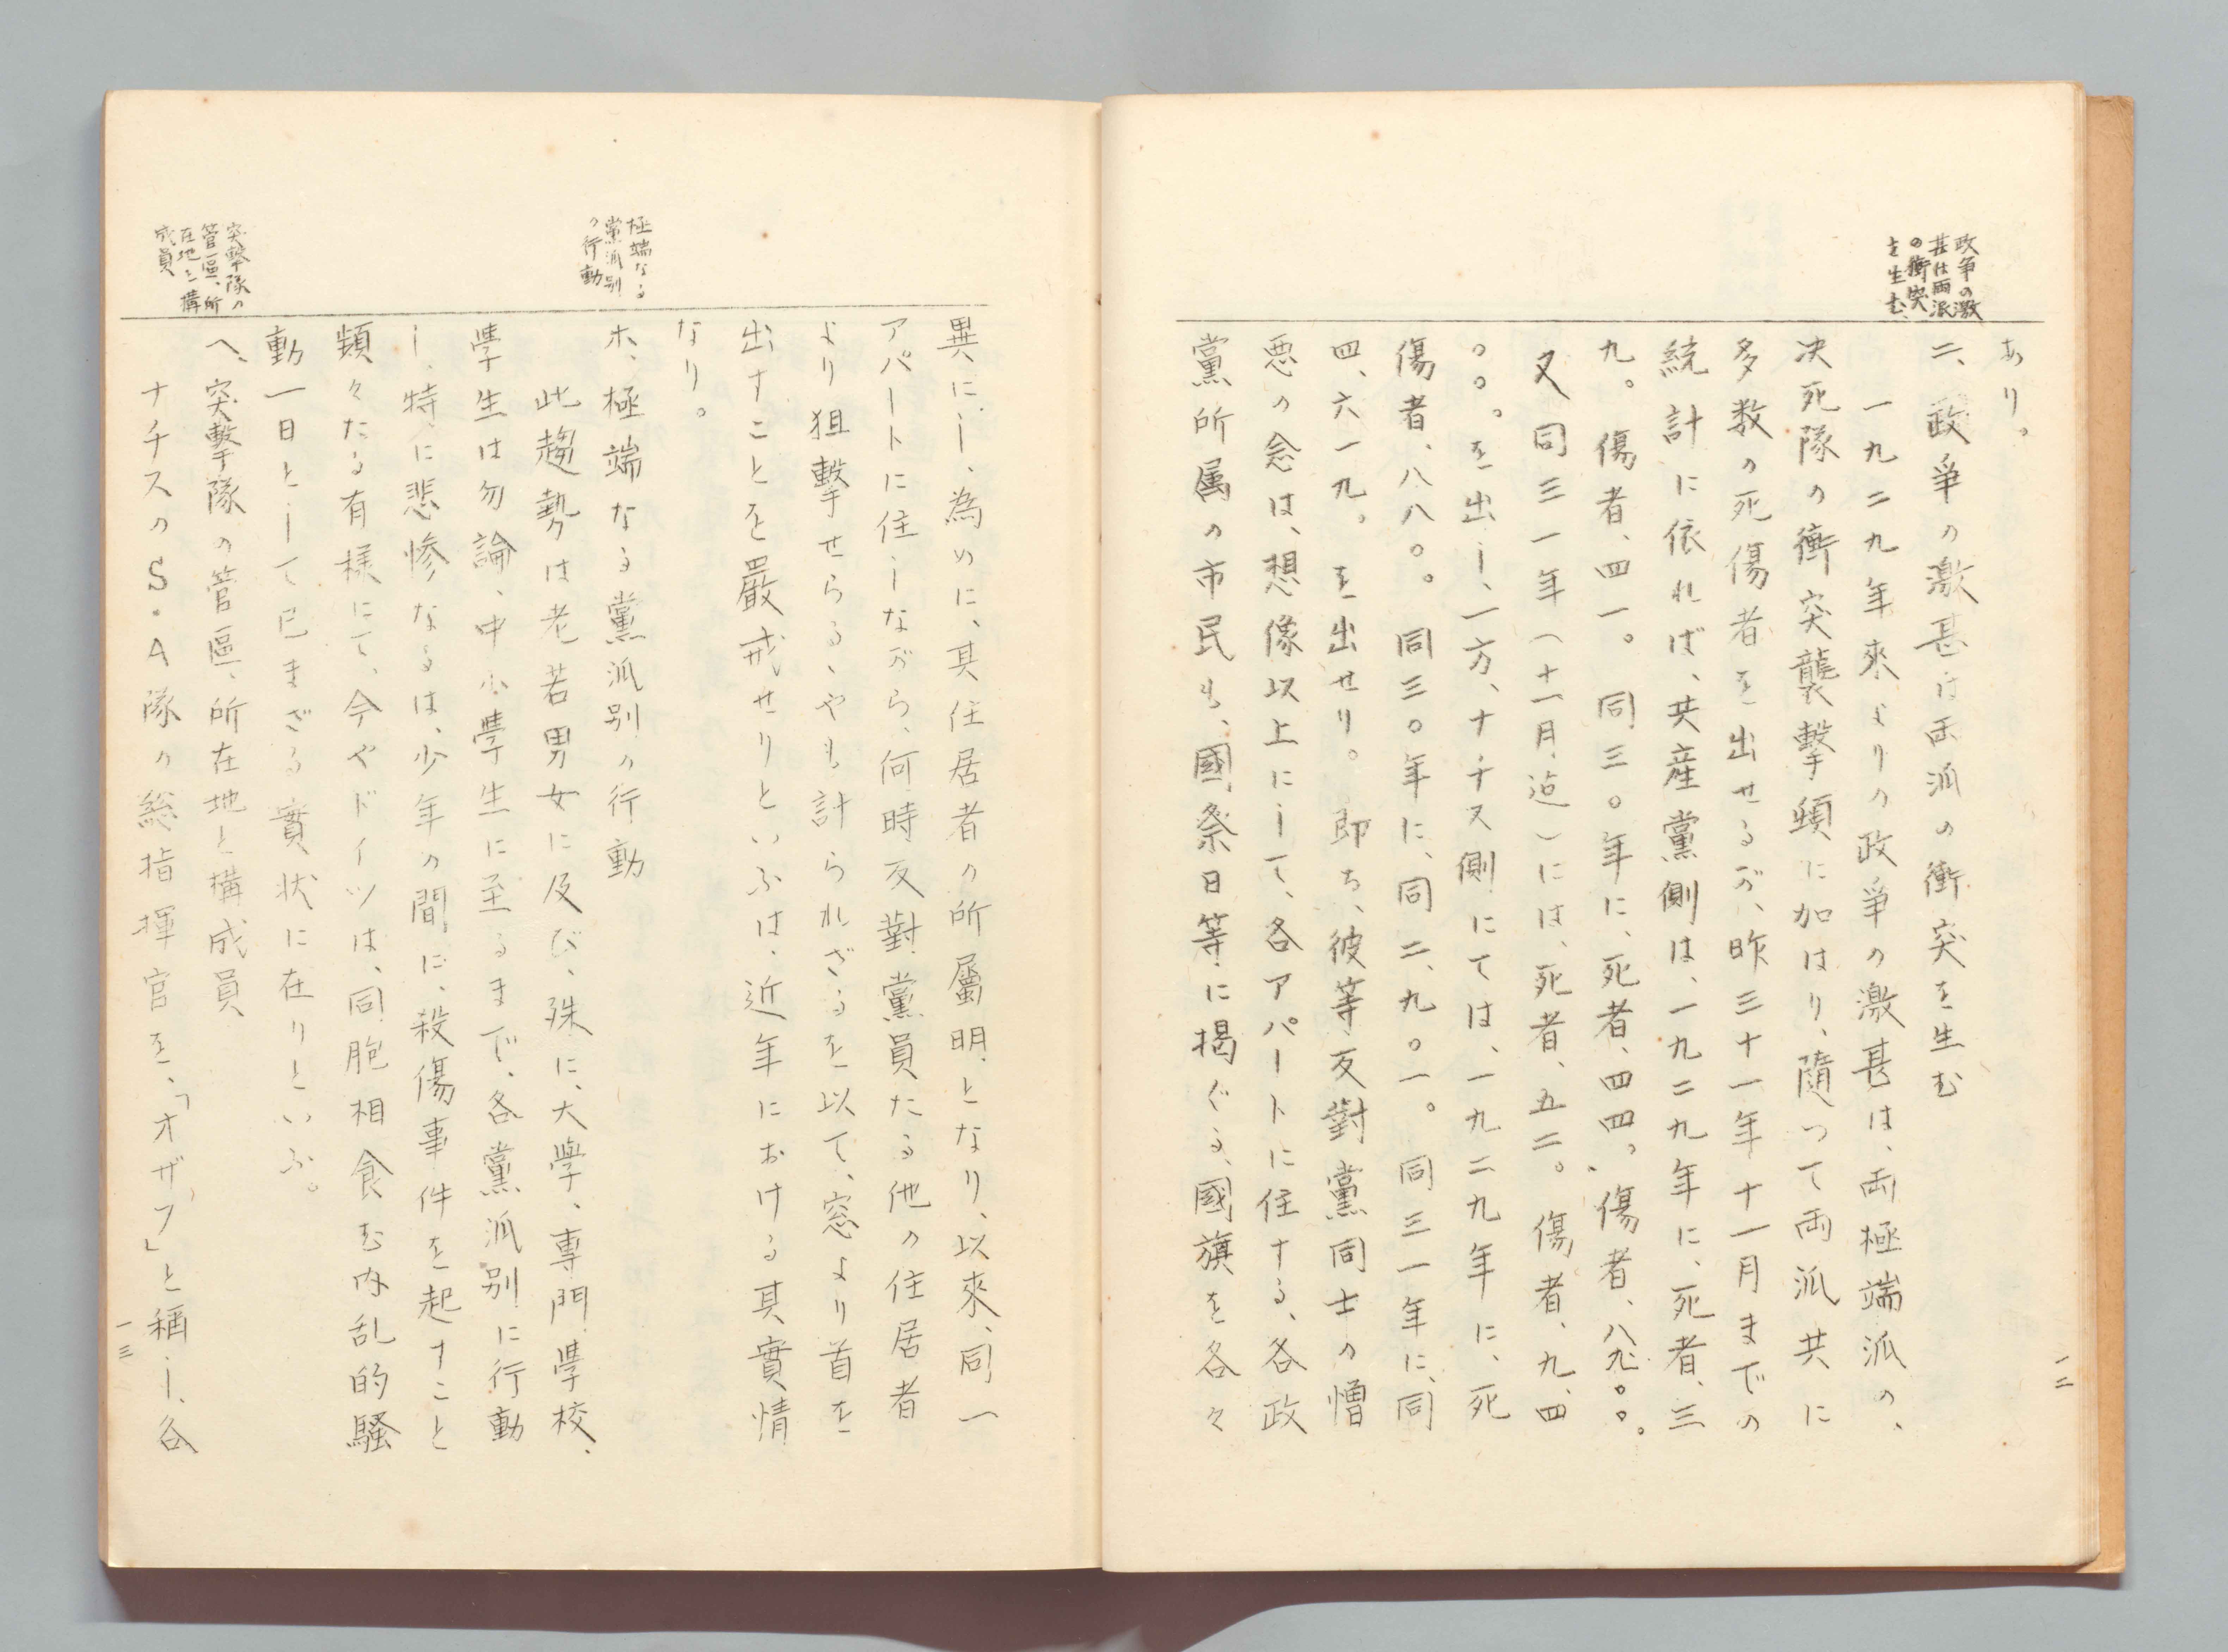 政争の激
甚は両派
の衝突
を生む
あり。
ニ、政爭の激甚は両派の衝突を生む
一九二九年來よりの政爭の激甚は、両極端派の、
决死隊の衝突襲撃頻に加はり、隨つて両派共に
多数の死傷者を出せるが、昨三十一年十一月までの
統計に依れば、共産黨側は、一九二九年に、死者、三
九。傷者、四一。同三〇年に、死者、四四、傷者、八九〇。
又同三一年(十一月迠)には、死者、五二。傷者、九、四
〇〇。を出し、一方、ナチス側にては、一九二九年に、死
傷者、八八〇。同三〇年に、同二、九〇一。同三一年に、同
四、六一九。を出せり。即ち、彼等反對黨同士の憎
悪の念は、想像以上にして、各アパートに住する、各政
黨所属の市民も、國祭日等に揭ぐる、國旗を各々
一二
極端なる
黨派別
の行動
突撃隊の
管區、所
在地と構
成員
異にし、為めに、其住居者の所屬明となり、以來、同一
アパートに住しながら、何時反對黨員たる他の住居者
より狙撃せらるゝやも計られざるを以て、窓より首を
出すことを嚴戒せりといふは、近年における其實情
なり。
ホ、極端なる黨派別の行動
此趨勢は老若男女に及び、殊に、大學、専門學校、
學生は勿論、中小學生に至るまで、各黨派別に行動
し、特に悲惨なるは、少年の間に、殺傷事件を起すこと
頻々たる有様にて、今やドイツは、同胞相食む内乱的騒
動一日として已まざる實状に在りといふ。
ヘ、突撃隊の管區、所在地と構成員
ナチスのS・A隊の総指揮官を、「オザフ」と稱し、各
一三